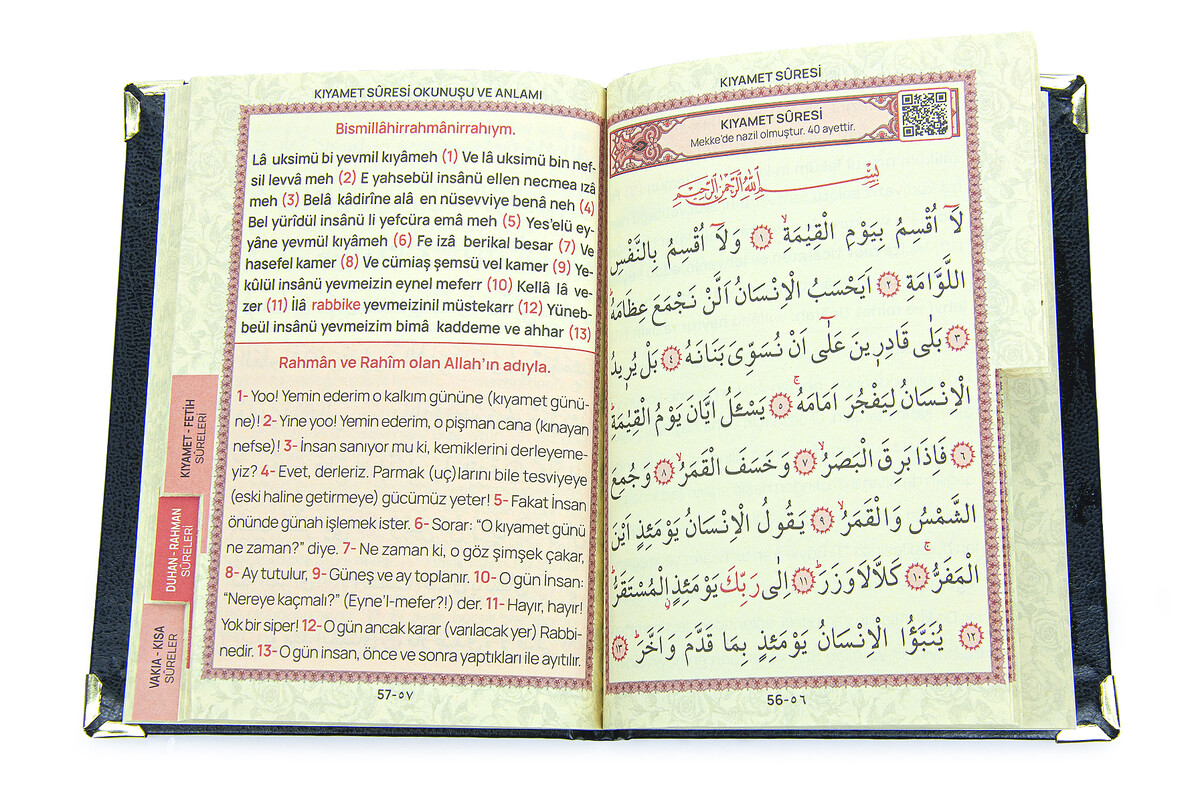 KIYAMET SÛRESİ OKUNUŞU VE ANLAMI
Bismillâhirrahmânirrahıym.
Lâ uksimü bi yevmil kıyâmeh (1) Ve lâ uksimü bin nef-
sil levvâ meh (2) E yahsebül insânü ellen necmea ızâ
meh (3) Belâ kâdirîne alâ en nüsevviye benâ neh (4)
Bel yürîdül insânü li yefcüra emâ meh (5) Yes'elü ey-
yâne yevmül kıyâmeh (6) Fe izâ berikal besar (7) Ve
hasefel kamer (8) Ve cümiaş şemsü vel kamer (9) Ye-
kûlül insânü yevmeizin eynel meferr (10) Kellâ lâ ve-
zer (11) İlâ rabbike yevmeizinil müstekarr (12) Yüneb-
beül insânü yevmeizim bimâ kaddeme ve ahhar (13)
Rahmân ve Rahîm olan Allah'ın adıyla.
1- Yoo! Yemin ederim o kalkım gününe (kıyamet günü-
ne)! 2- Yine yoo! Yemin ederim, o pişman cana (kınayan
nefse)! 3- İnsan sanıyor mu ki, kemiklerini derleyeme-
yiz? 4- Evet, derleriz. Parmak (uç)larını bile tesviyeye
(eski haline getirmeye) gücümüz yeter! 5- Fakat İnsan
önünde günah işlemek ister. 6- Sorar: “O kıyamet günü
ne zaman?” diye. 7- Ne zaman ki, o göz şimşek çakar,
8- Ay tutulur, 9- Güneş ve ay toplanır. 10- O gün İnsan:
“Nereye kaçmalı?” (Eyne'l-mefer?!) der. 11- Hayır, hayır!
Yok bir siper! 12- O gün ancak karar (varılacak yer) Rabbi-
nedir. 13- O gün insan, önce ve sonra yaptıkları ile ayıtılır.
57-٥٧
KIYAMET - FETİH
SÛRELERİ
DUHAN - RAHMAN
SÛRELERİ
VAKIA - KISA
SÛRELER
KIYAMET SÛRESİ
KIYAMET SÛRESİ
Mekke'de nazil olmuştur. 40 ayettir.
بِسْمِ اللّٰهِ الرَّحْمٰنِ الرَّحِيمِ
لَآ اُقْسِمُ بِيَوْمِ الْقِيٰمَةِۙ ﴿١﴾ وَلَآ اُقْسِمُ بِالنَّفْسِ
اللَّوَّامَةِ ﴿٢﴾ اَيَحْسَبُ الْاِنْسَانُ اَلَّنْ نَجْمَعَ عِظَامَهُۜ
﴿٣﴾ بَلٰى قَادِرٖينَ عَلٰٓى اَنْ نُسَوِّىَ بَنَانَهُ ﴿٤﴾ بَلْ يُرٖيدُ
الْاِنْسَانُ لِيَفْجُرَ اَمَامَهُۚ ﴿٥﴾ يَسْـَٔلُ اَيَّانَ يَوْمُ الْقِيٰمَةِۜ
﴿٦﴾ فَاِذَا بَرِقَ الْبَصَرُۙ ﴿٧﴾ وَخَسَفَ الْقَمَرُۙ ﴿٨﴾ وَجُمِعَ
الشَّمْسُ وَالْقَمَرُۙ ﴿٩﴾ يَقُولُ الْاِنْسَانُ يَوْمَئِذٍ اَيْنَ
الْمَفَرُّۚ ﴿١٠﴾ كَلَّا لَا وَزَرَۜ ﴿١١﴾ اِلٰى رَبِّكَ يَوْمَئِذٍۨ الْمُسْتَقَرُّۜ
﴿١٢﴾ يُنَبَّؤُا الْاِنْسَانُ يَوْمَئِذٍ بِمَا قَدَّمَ وَاَخَّرَۜ ﴿١٣﴾
56-٥٦